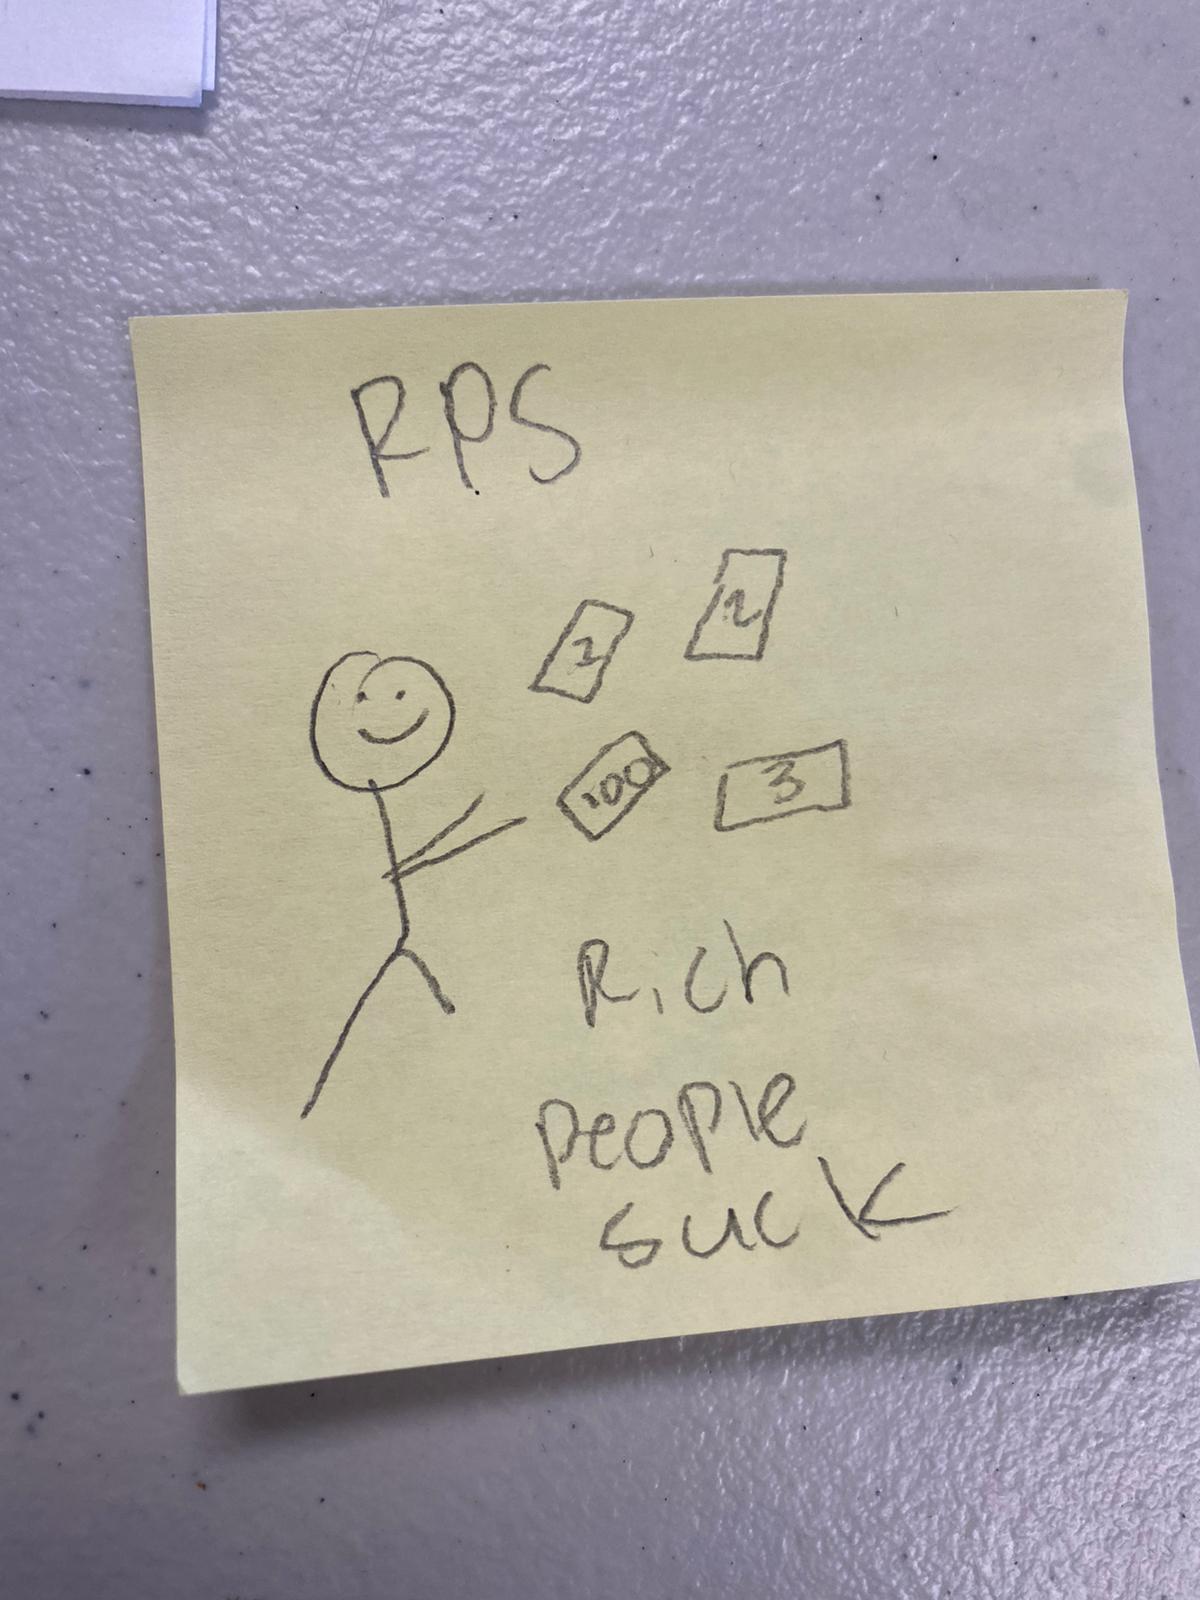 RPS
2
2
100
3
Rich
people
suck